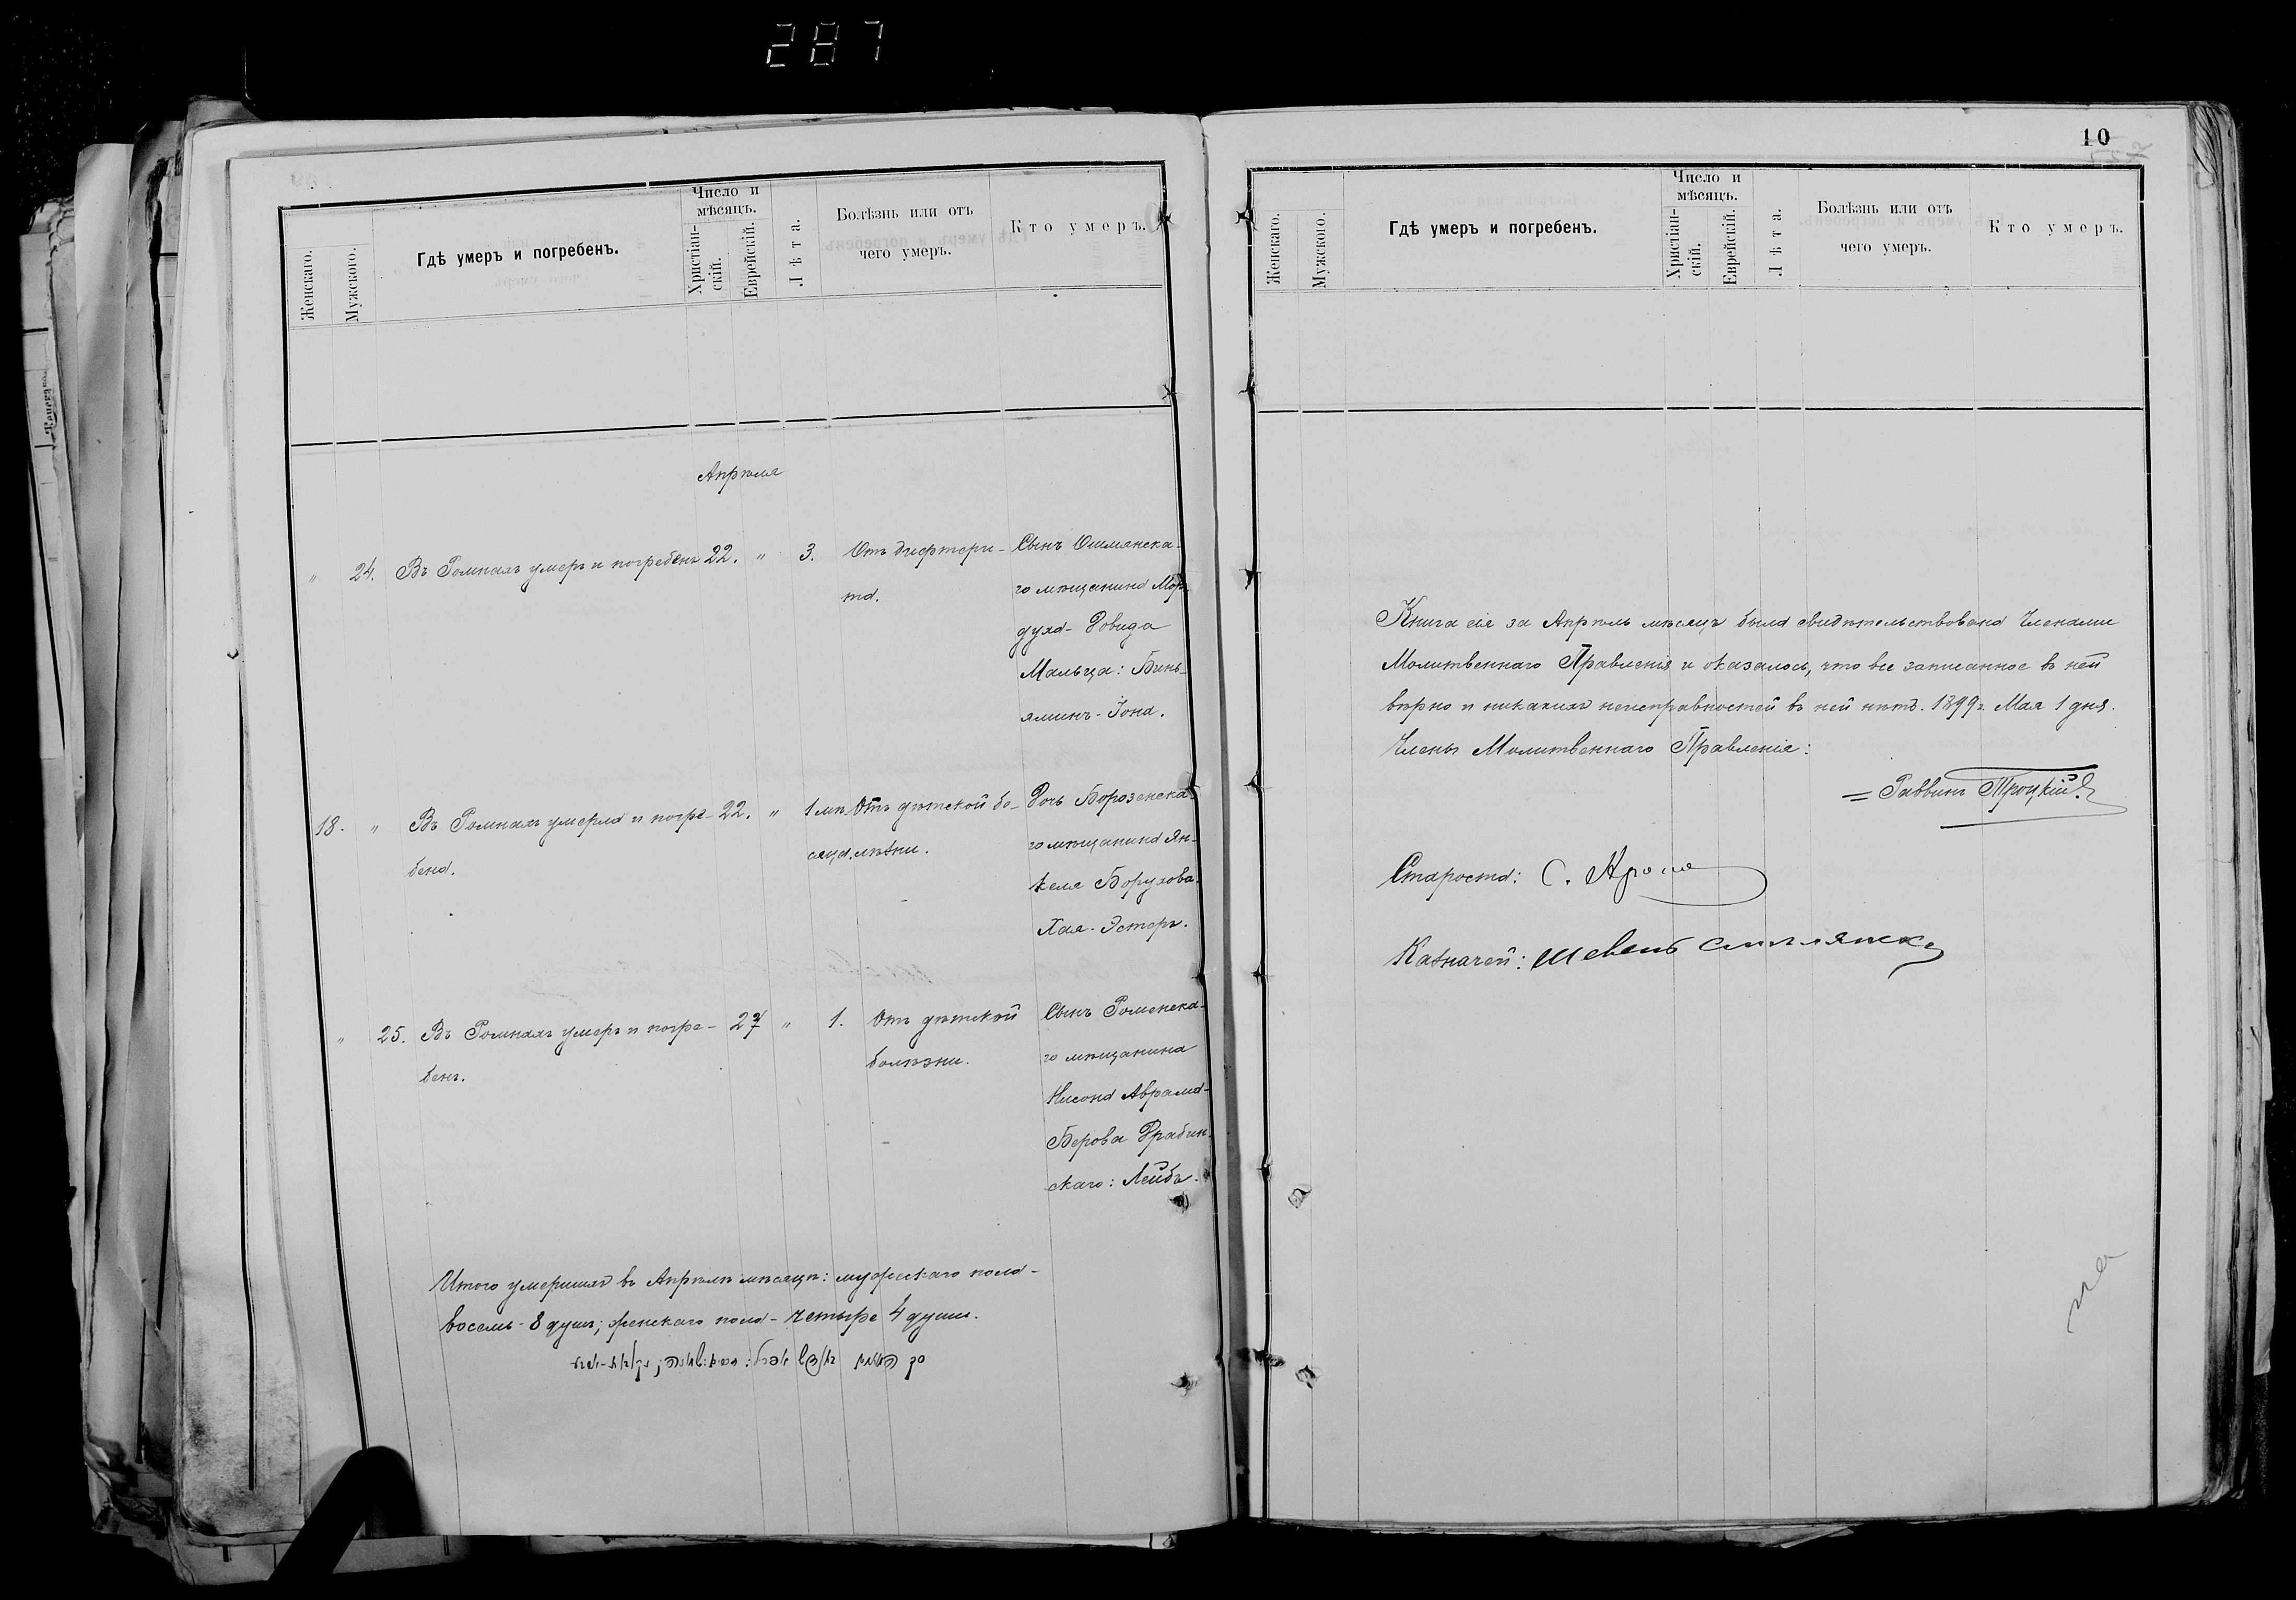 287
Женскаго.
Мужскаго.
Гдѣ умеръ и погребенъ.
Число и мѣсяцъ.
Христіан-
скій.
Еврейскій.
Лѣта.
Болѣзнь или отъ
чего умеръ.
Кто умеръ.
Апрѣля
" 24. Въ Ромнахъ умеръ и погребенъ 22. " 3. Отъ дифтери- Сынъ Ошмянска-
та. го мѣщанина Мор-
духа-Довида
Мальца: Бинь-
яминъ-Іона.
18. " Въ Ромнахъ умерла и погре- 22. " 1 мѣ- Отъ дѣтской бо- Дочь Борозенска-
бена. сяца. лѣзни. го мѣщанина Ян-
келя Борухова
Хая-Эстеръ.
" 25. Въ Ромнахъ умеръ и погре- 27 " 1. Отъ дѣтской Сынъ Роменска-
бенъ. болѣзни. го мѣщанина
Нисона Аврама-
Берова Драбин-
скаго: Лейбъ.
Итого умершихъ въ Апрѣлѣ мѣсяцѣ: мужескаго пола-
восемь-8 душъ; женскаго пола-четыре 4 души.
10
Женскаго.
Мужскаго.
Гдѣ умеръ и погребенъ.
Число и
мѣсяцъ.
Христіан-
скій.
Еврейскій.
Лѣта.
Болѣзнь или отъ
чего умеръ.
Кто умеръ.
Книга сія за Апрѣль мѣсяцъ была свидѣтельствована Членами
Молитвеннаго Правленія и оказалось, что все записанное въ ней
вѣрно и никакихъ неисправностей въ ней нѣтъ. 1899 г. Мая 1 дня.
Члены Молитвеннаго Правленія:
= Раввинъ Троцкій.
Староста: С.
Казначей: